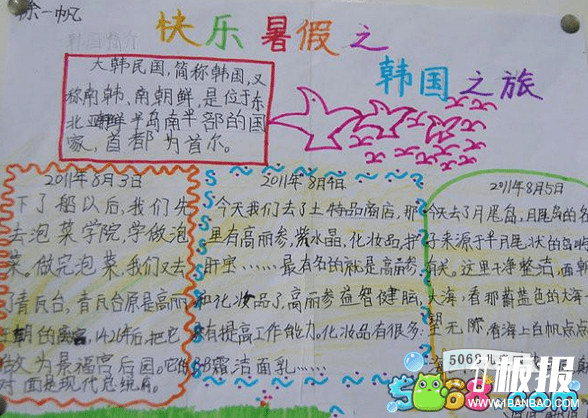 徐一帆
快乐暑假之
韩国之旅
韩国简介
大韩民国,简称韩国,又
称南韩、南朝鲜,是位于东
北亚朝鲜半岛南半部的国
家,首都为首尔。
2011年8月3日
下了船以后,我们先
去泡菜学院,学做泡
菜。做完泡菜,我们又去
了青瓦台,青瓦台原是高丽
王朝的离宫,1426年后,把它
做为景福宫后园。它的
对面是现代总统府。
2011年8月4日
今天我们去了土特品商店,那
里有高丽参,紫水晶,化妆品,护
肝宝……最有名的就是高丽参
和化妆品了,高丽参益智健脑,
有提高工作能力。化妆品有很多:
BB霜洁面乳……
2011年8月5日
今天去了月尾岛,月尾岛的名
子来源于半月尾状的岛
有关。这里干净整洁,面朝
大海,看那蔚蓝色的大海一
望无际,看海上白帆点点
5068儿
极报
WWW.1BANBAO.COM